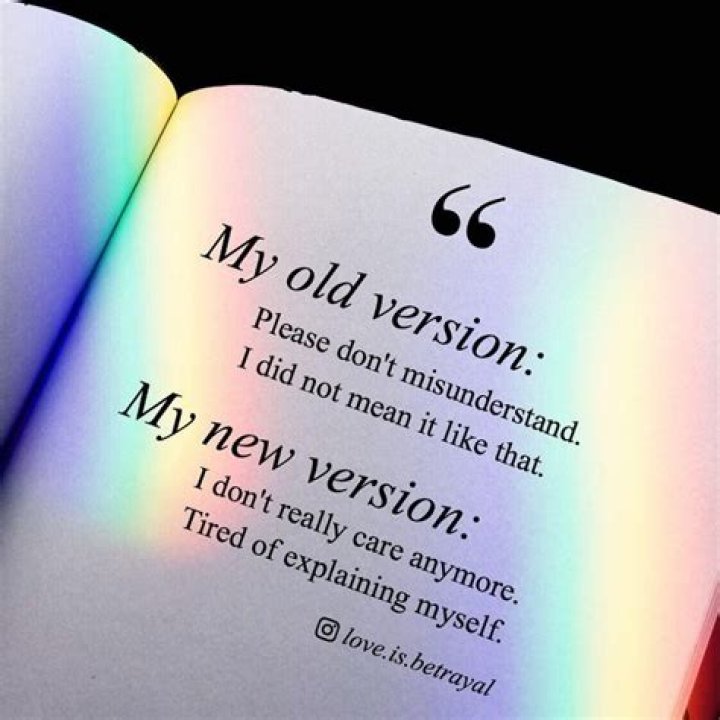 “
My old version:
Please don't misunderstand.
I did not mean it like that.
My new version:
I don't really care anymore.
Tired of explaining myself.
love.is.betrayal